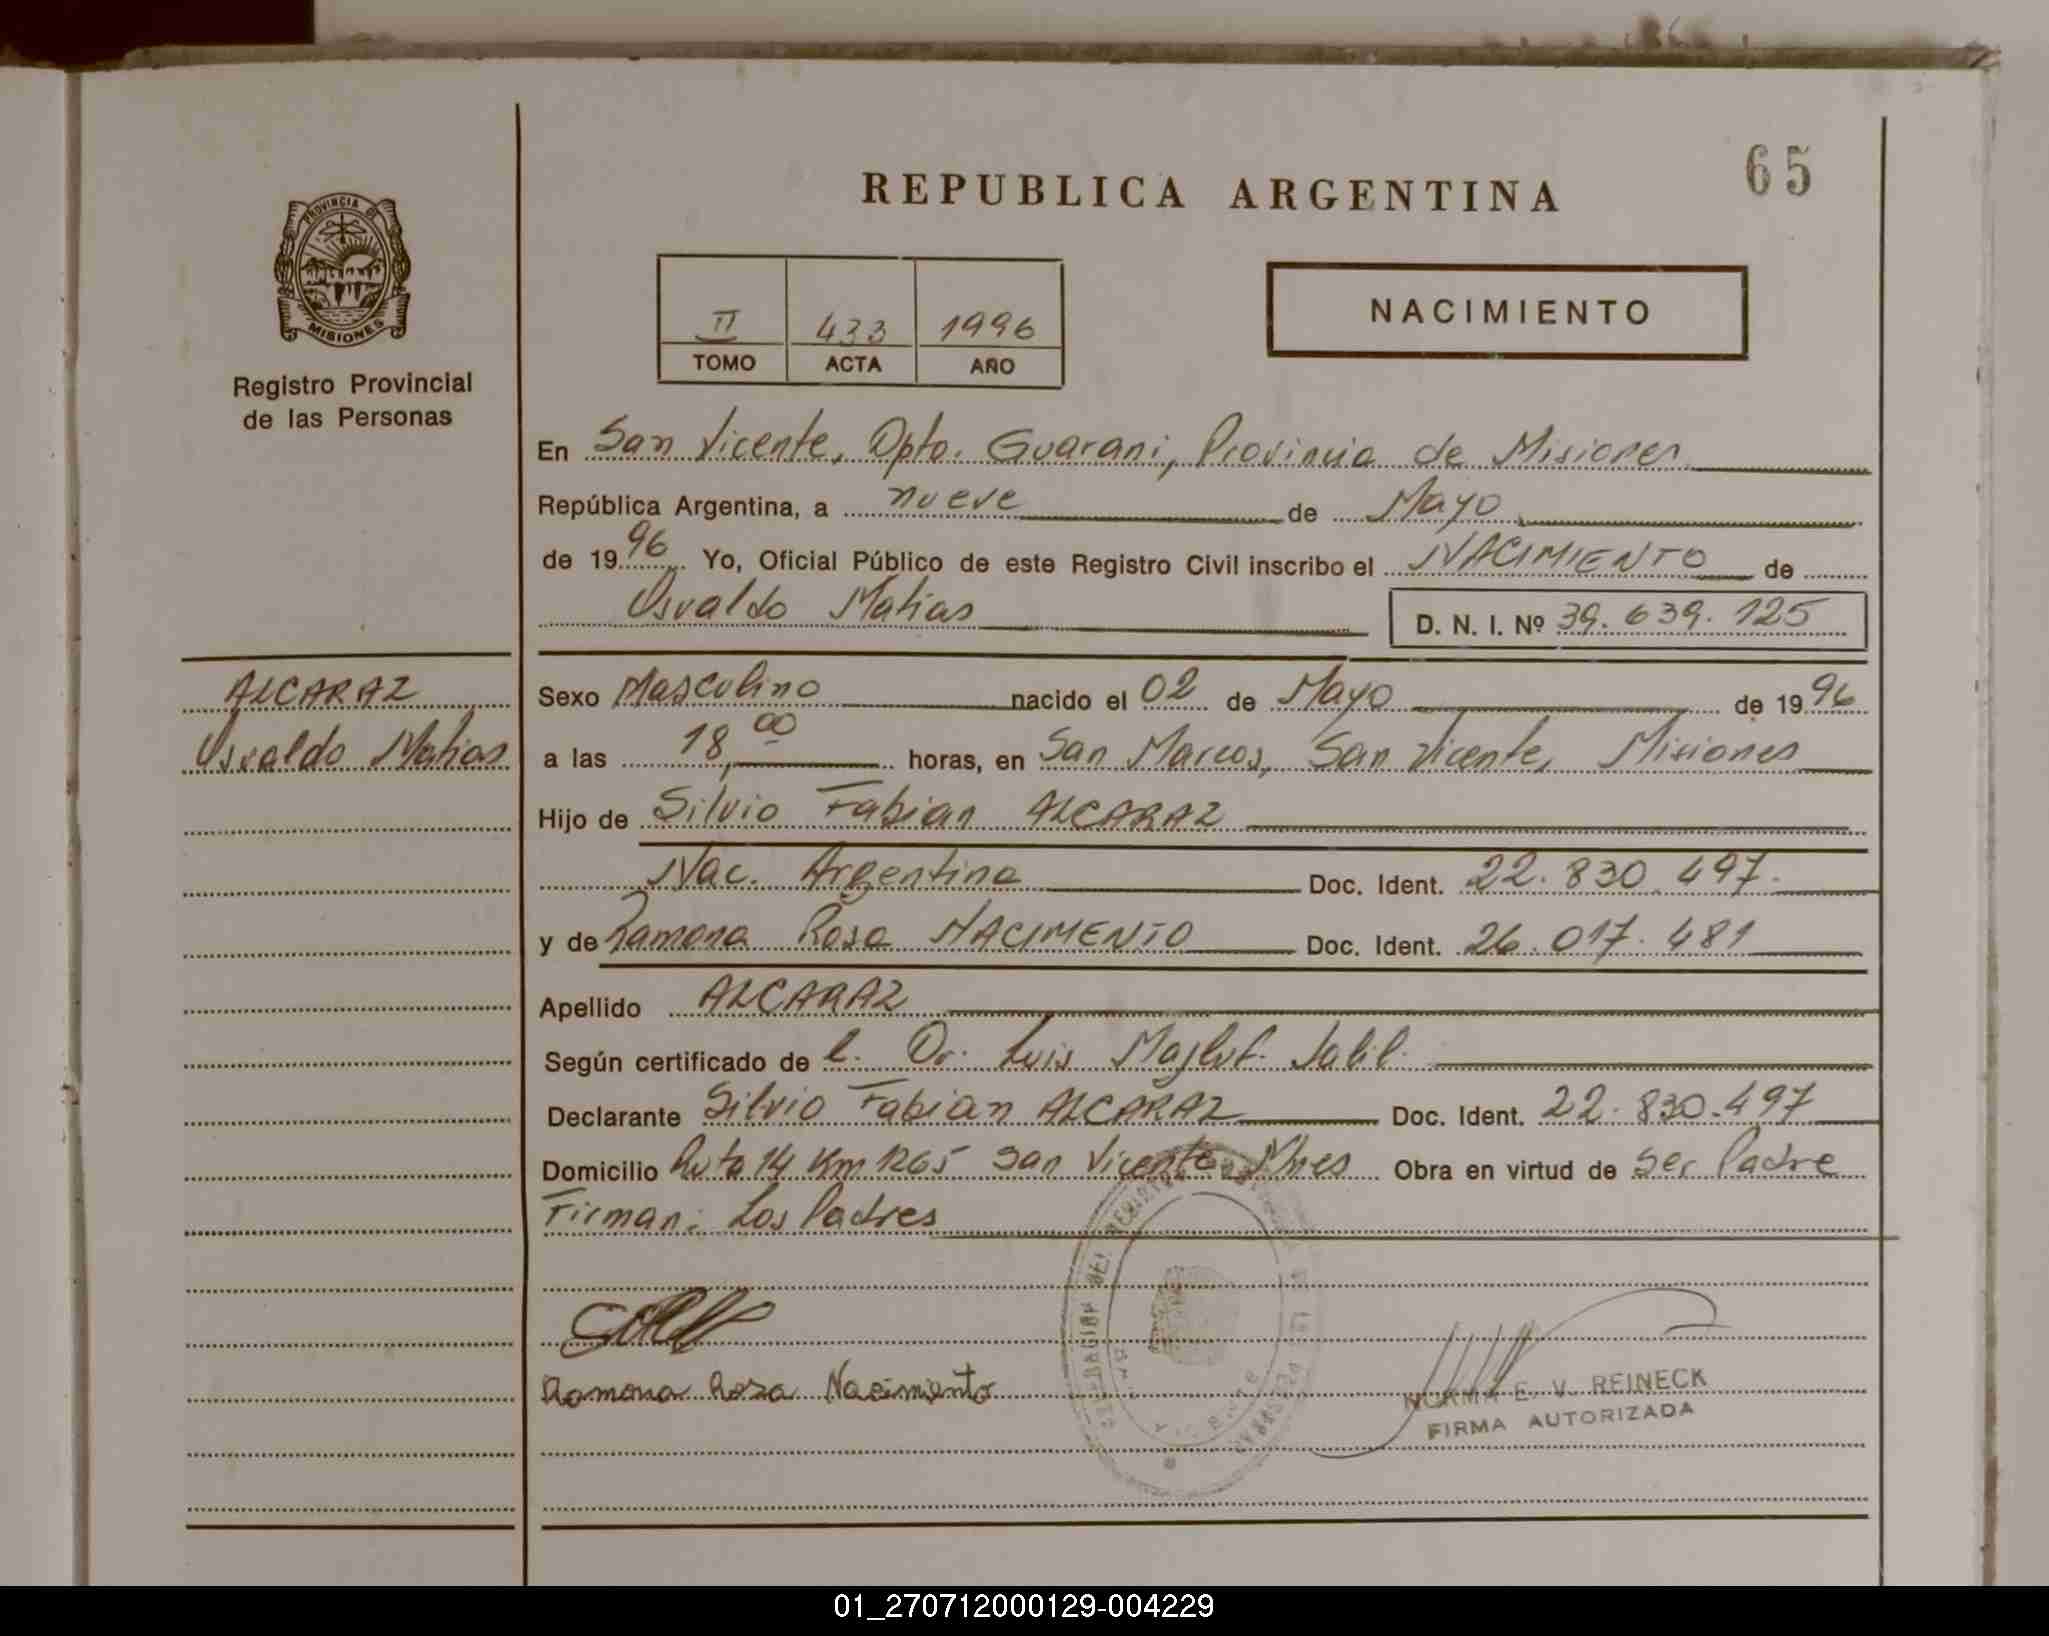 65
REPUBLICA ARGENTINA
PROVINCIA DE
MISIONES
Registro Provincial
de las Personas
II 433 1996
TOMO ACTA AÑO
NACIMIENTO
En San Vicente, Dpto. Guarani, Provincia de Misiones
República Argentina, a nueve de Mayo
de 1996 Yo, Oficial Público de este Registro Civil inscribo el NACIMIENTO de
Osvaldo Matias D. N. I. Nº 39.639.125
ALCARAZ
Osvaldo Matias
Sexo Masculino nacido el 02 de Mayo de 1996
a las 18,00 horas, en San Marcos, San Vicente, Misiones
Hijo de Silvio Fabian ALCARAZ
Nac. Argentina Doc. Ident. 22.830.497.
y de Ramona Rosa NACIMENTO Doc. Ident. 26.017.481
Apellido ALCARAZ
Según certificado de l. Dr. Luis
Declarante Silvio Fabian ALCARAZ Doc. Ident. 22.830.497
Domicilio Ruta 14 Km 1265 San Vicente Mnes Obra en virtud de Ser Padre
Firman: Los Padres
Ramona Rosa Nacimento
NORMA E. V. REINECK
FIRMA AUTORIZADA
01_270712000129-004229